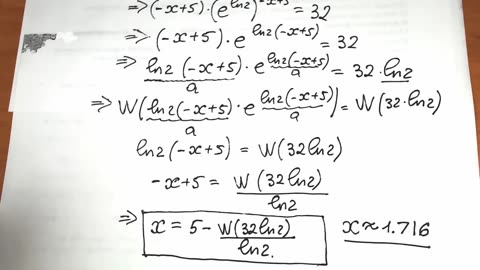 ⇒ (-x+5)·(e^ln2)^(-x+5) = 32
⇒ (-x+5)·e^(ln2(-x+5)) = 32
⇒ ln2(-x+5)·e^(ln2(-x+5)) = 32·ln2
a a
⇒ W(ln2(-x+5)·e^(ln2(-x+5))) = W(32·ln2)
a a
ln2(-x+5) = W(32ln2)
-x+5 = W(32ln2)
ln2
⇒ x = 5 - W(32ln2) x≈1.716
ln2.